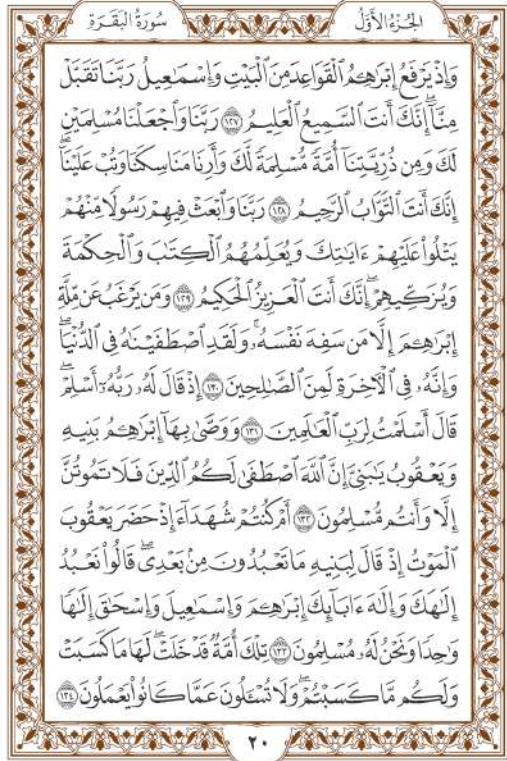 سُورَةُ البَقَرَةِ
الجُزْءُ الأَوَّلُ
وَإِذْ يَرْفَعُ إِبْرَٰهِـۧمُ ٱلْقَوَاعِدَ مِنَ ٱلْبَيْتِ وَإِسْمَٰعِيلُ رَبَّنَا تَقَبَّلْ
مِنَّآۖ إِنَّكَ أَنتَ ٱلسَّمِيعُ ٱلْعَلِيمُ ١٢٧ رَبَّنَا وَٱجْعَلْنَا مُسْلِمَيْنِ
لَكَ وَمِن ذُرِّيَّتِنَآ أُمَّةً مُّسْلِمَةً لَّكَ وَأَرِنَا مَنَاسِكَنَا وَتُبْ عَلَيْنَآۖ
إِنَّكَ أَنتَ ٱلتَّوَّابُ ٱلرَّحِيمُ ١٢٨ رَبَّنَا وَٱبْعَثْ فِيهِمْ رَسُولًا مِّنْهُمْ
يَتْلُوا۟ عَلَيْهِمْ ءَايَٰتِكَ وَيُعَلِّمُهُمُ ٱلْكِتَٰبَ وَٱلْحِكْمَةَ
وَيُزَكِّيهِمْۚ إِنَّكَ أَنتَ ٱلْعَزِيزُ ٱلْحَكِيمُ ١٢٩ وَمَن يَرْغَبُ عَن مِّلَّةِ
إِبْرَٰهِـۧمَ إِلَّا مَن سَفِهَ نَفْسَهُۥۚ وَلَقَدِ ٱصْطَفَيْنَٰهُ فِى ٱلدُّنْيَاۖ
وَإِنَّهُۥ فِى ٱلْءَاخِرَةِ لَمِنَ ٱلصَّٰلِحِينَ ١٣٠ إِذْ قَالَ لَهُۥ رَبُّهُۥٓ أَسْلِمْۖ
قَالَ أَسْلَمْتُ لِرَبِّ ٱلْعَٰلَمِينَ ١٣١ وَوَصَّىٰ بِهَآ إِبْرَٰهِـۧمُ بَنِيهِ
وَيَعْقُوبُ يَٰبَنِىَّ إِنَّ ٱللَّهَ ٱصْطَفَىٰ لَكُمُ ٱلدِّينَ فَلَا تَمُوتُنَّ
إِلَّا وَأَنتُم مُّسْلِمُونَ ١٣٢ أَمْ كُنتُمْ شُهَدَآءَ إِذْ حَضَرَ يَعْقُوبَ
ٱلْمَوْتُ إِذْ قَالَ لِبَنِيهِ مَا تَعْبُدُونَ مِنۢ بَعْدِىۖ قَالُوا۟ نَعْبُدُ
إِلَٰهَكَ وَإِلَٰهَ ءَابَآئِكَ إِبْرَٰهِـۧمَ وَإِسْمَٰعِيلَ وَإِسْحَٰقَ إِلَٰهًا
وَٰحِدًا وَنَحْنُ لَهُۥ مُسْلِمُونَ ١٣٣ تِلْكَ أُمَّةٌ قَدْ خَلَتْۖ لَهَا مَا كَسَبَتْ
وَلَكُم مَّا كَسَبْتُمْۖ وَلَا تُسْـَٔلُونَ عَمَّا كَانُوا۟ يَعْمَلُونَ ١٣٤
٢٠